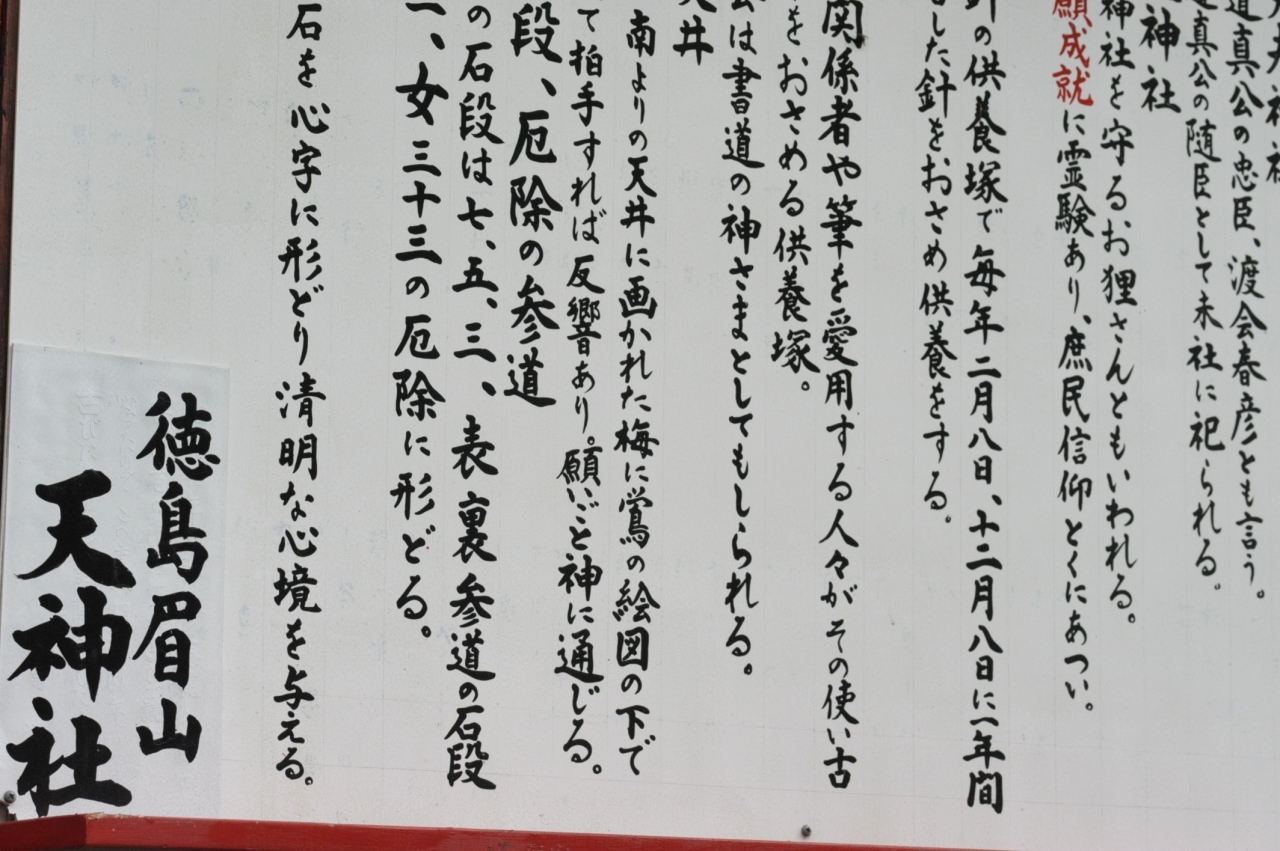 道真公の忠臣、渡会春彦とも言う。
真公の随臣として末社に祀られる。
神社
神社を守るお狸さんともいわれる。
願成就に霊験あり、庶民信仰とくにあつい。
針の供養塚で毎年二月八日、十二月八日に一年間
した針をおさめ供養をする。
関係者や筆を愛用する人々がその使い古
をおさめる供養塚。
は書道の神さまとしてもしられる。
天井
南よりの天井に画かれた梅に鴬の絵図の下で
て拍手すれば反響あり。願いごと神に通じる。
段、厄除の参道
の石段は七、五、三、表裏参道の石段
一、女三十三の厄除に形どる。
石を心字に形どり清明な心境を与える。
徳島眉山
天神社